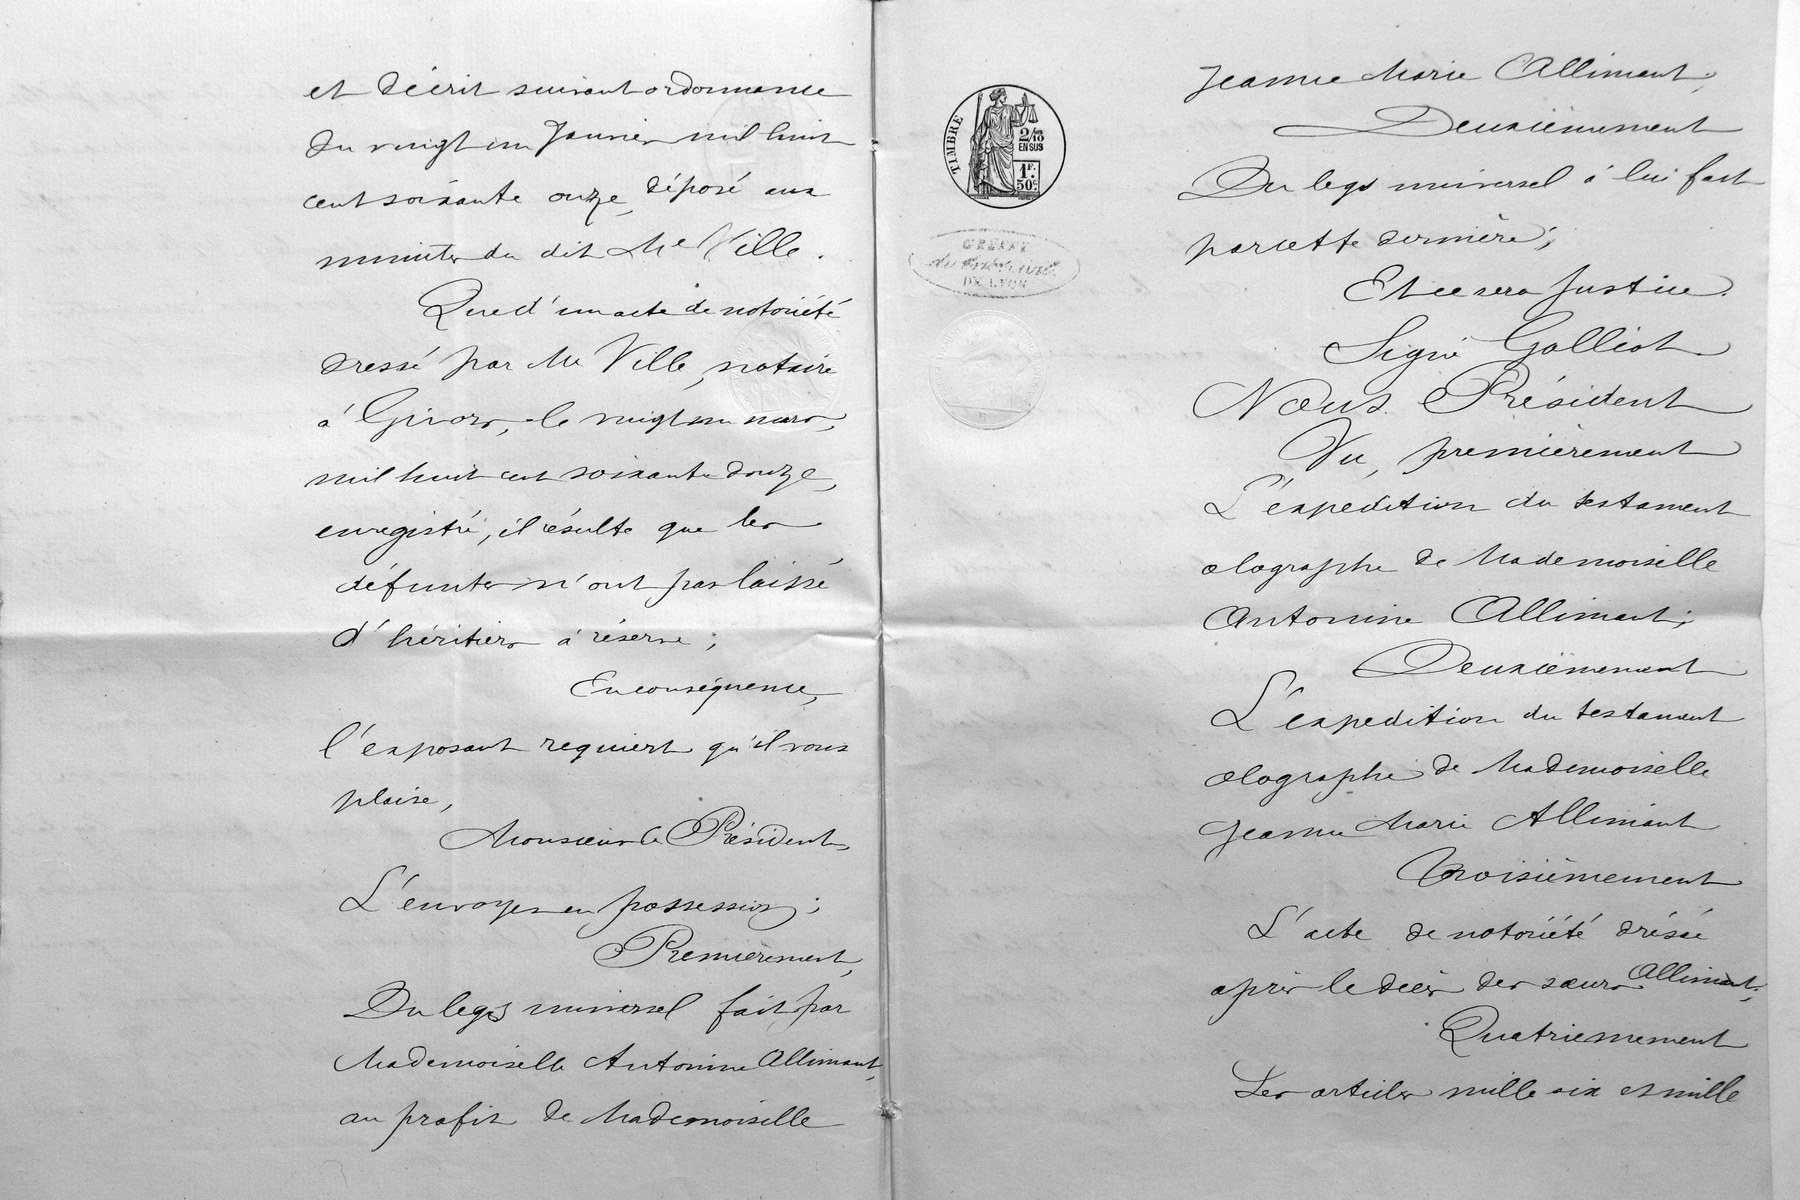 et décrit suivant ordonnance
du vingt un Janvier mil huit
cent soixante onze, déposé aux
minutes du dit Me Ville.
Que d'un acte de notoriété
dressé par Me Ville, notaire
à Givors, le vingt un mars,
mil huit cent soixante douze,
enregistré, il résulte que les
défuntes n'ont pas laissé
d'héritiers à réserve;
En conséquence,
l'exposant requiert qu'il vous
plaise,
Monsieur le Président,
L'envoyer en possession;
Premièrement,
Du legs universel fait par
Mademoiselle Antonine Allimant,
au profit de Mademoiselle
TIMBRE
2/10
EN SUS
1F.
50c.
GREFFE
DE LYON
Jeanne Marie Allimant;
Deuxièmement
Du legs universel à lui fait
par cette dernière;
Et ce sera Justice.
Signé Golliot
Nous Président
Vu, premièrement
L'expedition du testament
olographe de Mademoiselle
Antonine Allimant;
Deuxièmement
L'expedition du testament
olographe de Mademoiselle
Jeanne Marie Allimant
Troisièmement
L'acte de notoriété dréssé
après le décès des sœurs Allimant,
Quatriemement
Les articles mille six et mille